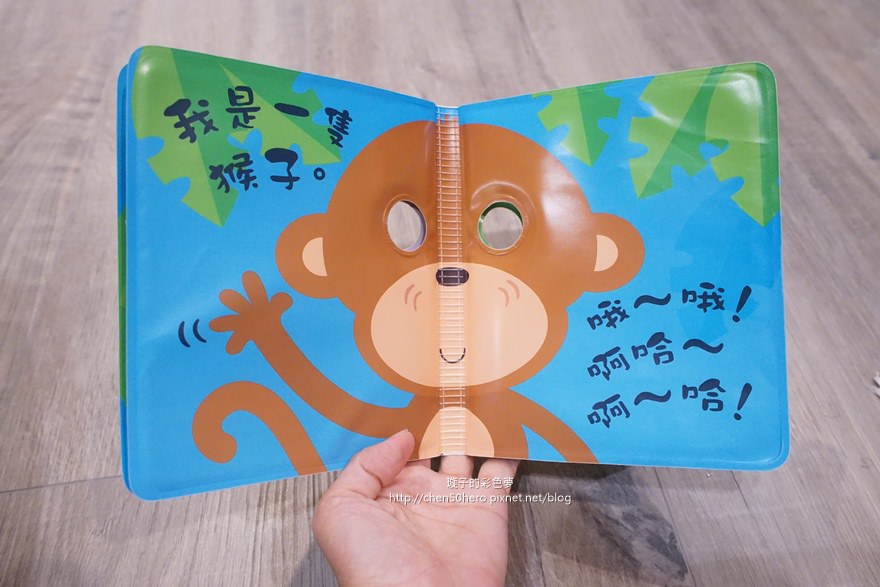 我是一隻
猴子。
哦～哦！
啊哈～
啊～哈！
璇子的彩色夢
http://chen50hero.pixnet.net/blog